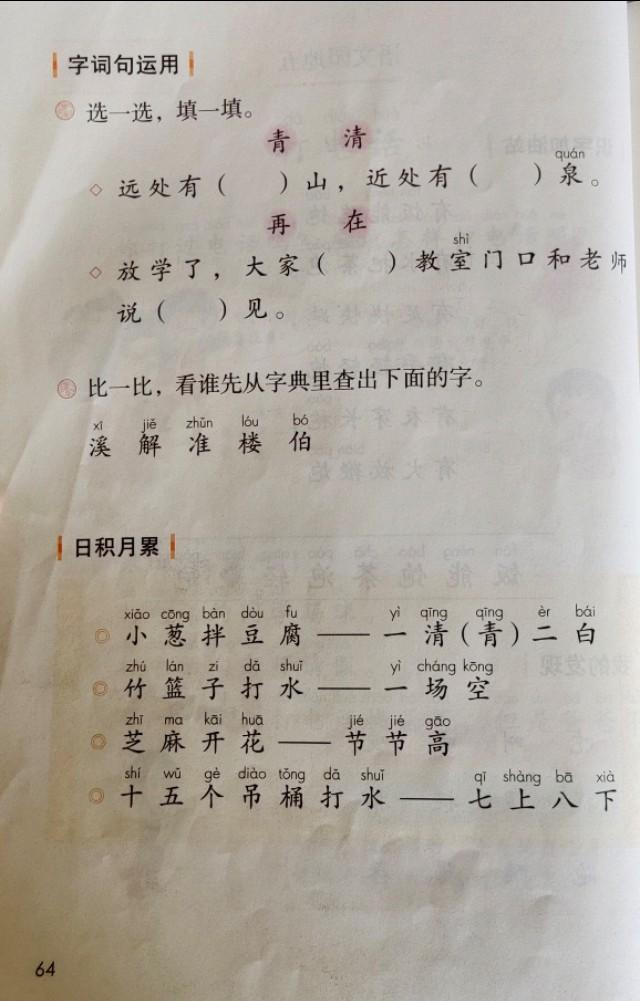 字词句运用
选一选，填一填。
青 清
quán
◇ 远处有（ ）山，近处有（ ）泉。
再 在
shì
◇ 放学了，大家（ ）教室门口和老师
说（ ）见。
比一比，看谁先从字典里查出下面的字。
xī jiě zhǔn lóu bó
溪 解 准 楼 伯
日积月累
xiǎo cōng bàn dòu fu yì qīng qīng èr bái
◎ 小葱拌豆腐——一清（青）二白
zhú lán zi dǎ shuǐ yì cháng kōng
◎ 竹篮子打水——一场空
zhī ma kāi huā jié jié gāo
◎ 芝麻开花——节节高
shí wǔ gè diào tǒng dǎ shuǐ qī shàng bā xià
◎ 十五个吊桶打水——七上八下
64